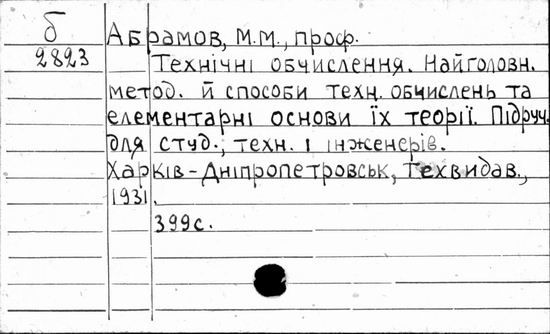 б
2823
Абрамов, М.М., проф.
Технічні обчислення. Найголовн.
метод. й способи техн. обчислень та
елементарні основи їх теорії. Підруч.
для студ., техн. і інженерів.
Харків-Дніпропетровськ, Техвидав.,
1931.
399с.